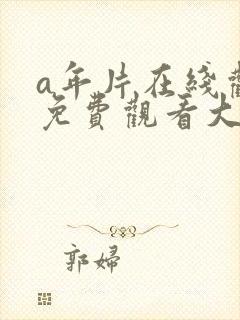 a年片在綫觀
免費觀看大
郭婦